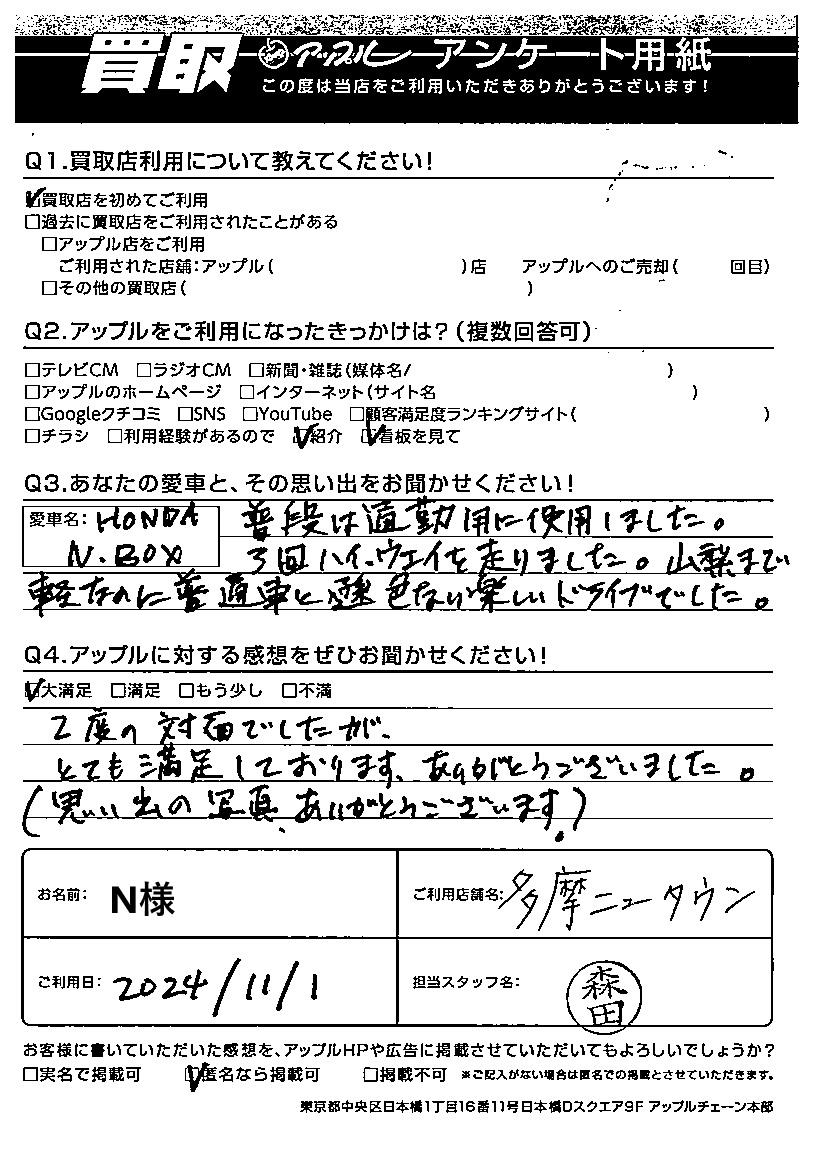 買取 アップル アンケート用紙
この度は当店をご利用いただきありがとうございます!
Q1.買取店利用について教えてください!
☑買取店を初めてご利用
□過去に買取店をご利用されたことがある
□アップル店をご利用
ご利用された店舗:アップル( )店 アップルへのご売却( 回目)
□その他の買取店( )
Q2.アップルをご利用になったきっかけは?(複数回答可)
□テレビCM □ラジオCM □新聞・雑誌(媒体名/ )
□アップルのホームページ □インターネット(サイト名 )
□Googleクチコミ □SNS □YouTube □顧客満足度ランキングサイト( )
□チラシ □利用経験があるので ☑紹介 ☑看板を見て
Q3.あなたの愛車と、その思い出をお聞かせください!
愛車名: HONDA N.BOX
普段は通勤用に使用しました。
3回ハイウェイを走りました。山梨まで
軽なのに普通車と遜色ない楽しいドライブでした。
Q4.アップルに対する感想をぜひお聞かせください!
☑大満足 □満足 □もう少し □不満
2度の対面でしたが、
とても満足しております、ありがとうございました。
(思い出の写真、ありがとうございます。)
お名前: N様 ご利用店舗名: 多摩ニュータウン
ご利用日: 2024/11/1 担当スタッフ名: 森田
お客様に書いていただいた感想を、アップルHPや広告に掲載させていただいてもよろしいでしょうか?
□実名で掲載可 ☑匿名なら掲載可 □掲載不可 ※ご記入がない場合は匿名での掲載とさせていただきます。
東京都中央区日本橋1丁目16番11号日本橋Dスクエア9F アップルチェーン本部